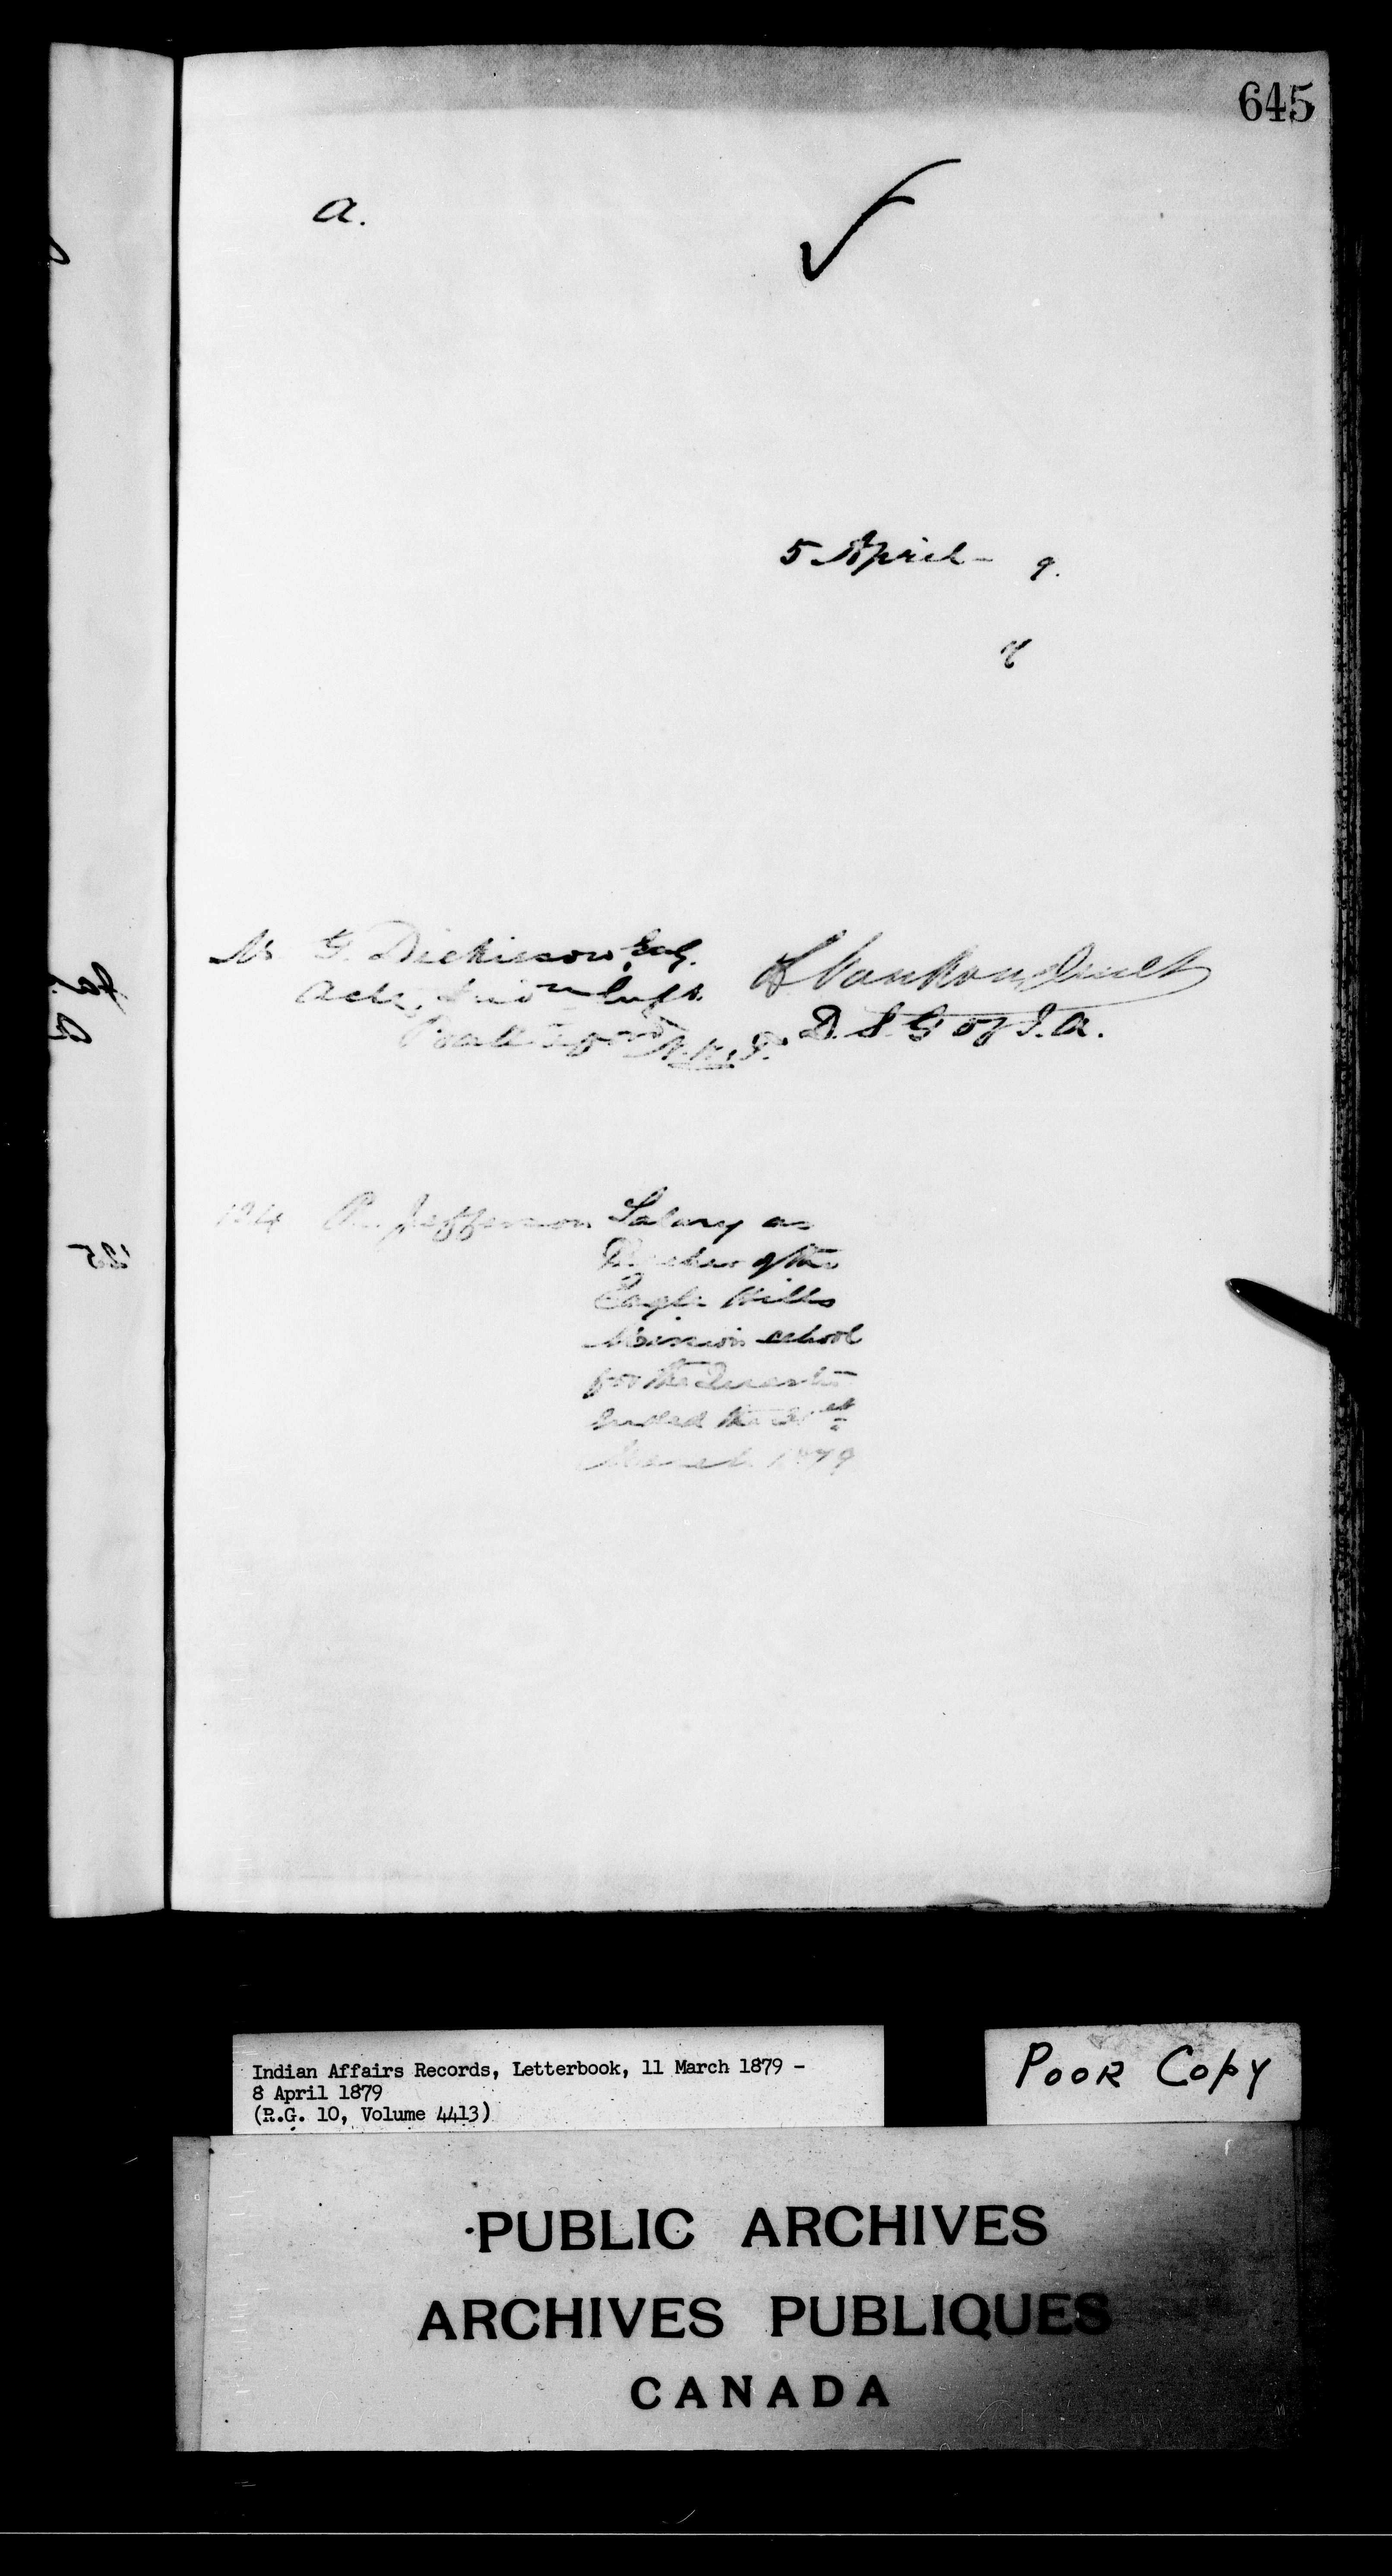 645
a.
5 April - 9.
8
G. Dickieson, Esq.
L VanKoughnet
Actg.
D. S. G of I. A.
N.W.T.
R. Jefferson Salary as
Teacher of the
Eagle Hills
Mission school
for the Quarter
Ended the 31st
March 1879
'25
Indian Affairs Records, Letterbook, 11 March 1879 -
8 April 1879
(R.G. 10, Volume 4413)
POOR COPY
PUBLIC ARCHIVES
ARCHIVES PUBLIQUES
CANADA